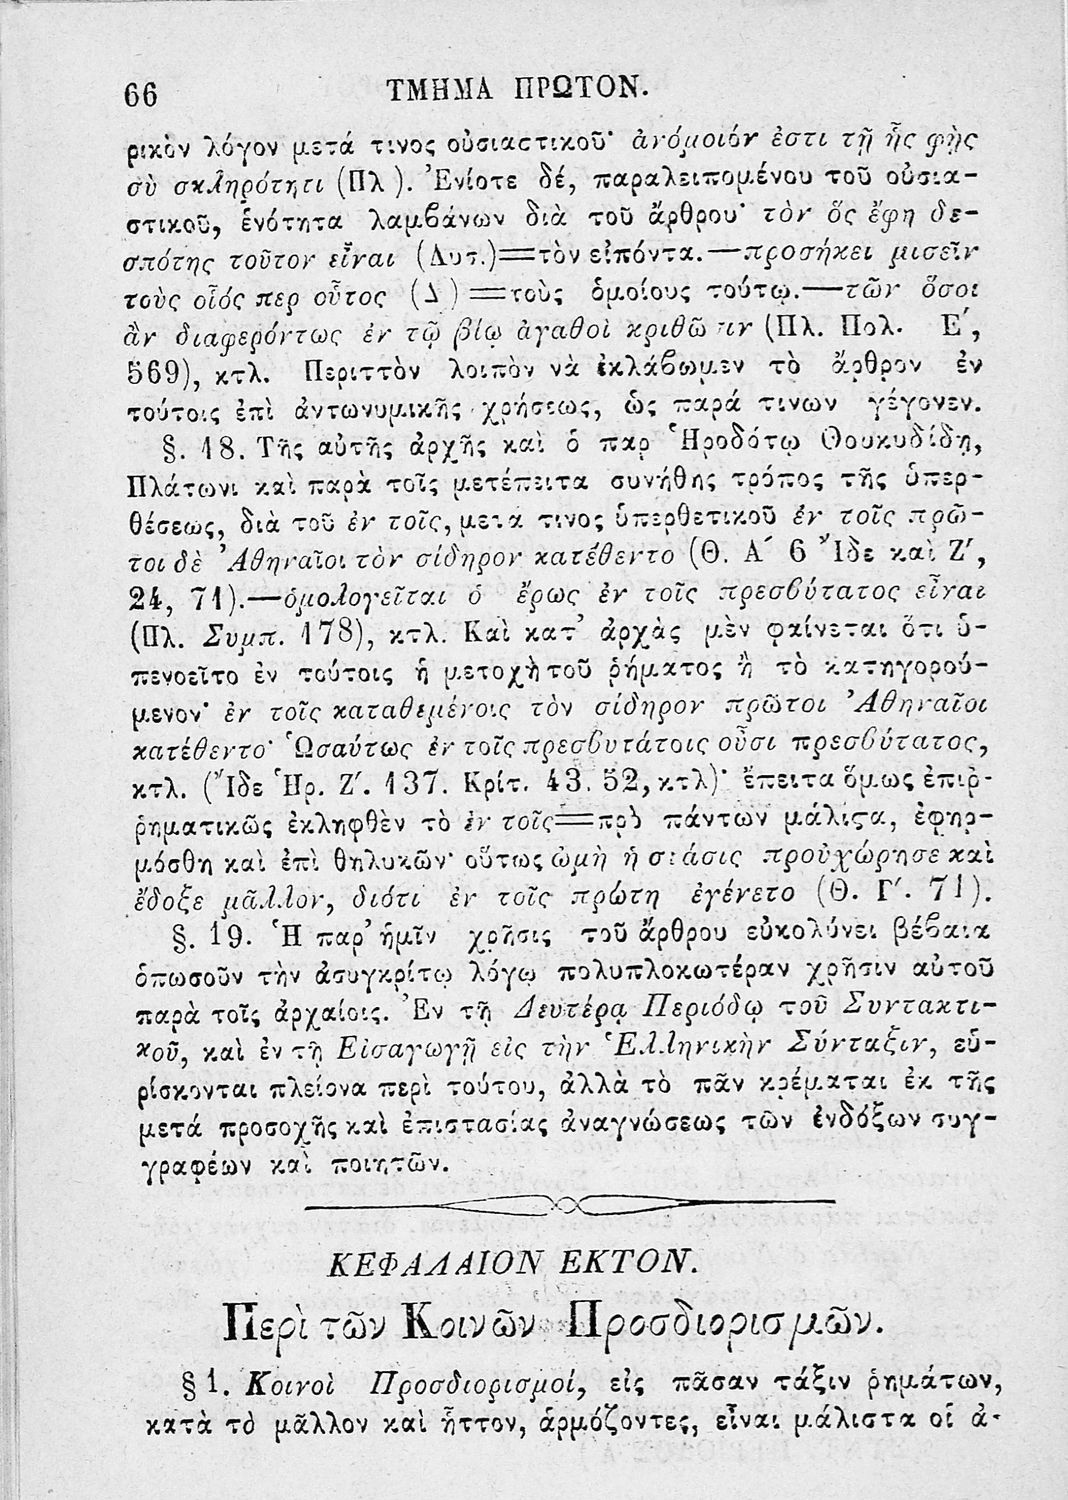 66 ΤΜΗΜΑ ΠΡΩΤΟΝ.
ρικὸν λόγον μετά τινος οὐσιαστικοῦ· ἀνόμοιόν ἐστι τῇ ἧς φῂς
σὺ σκληρότητι (Πλ). Ἐνίοτε δέ, παραλειπομένου τοῦ οὐσια-
στικοῦ, ἑνότητα λαμβάνων διὰ τοῦ ἄρθρου· τὸν ὃς ἔφη δε-
σπότης τοῦτον εἶναι (Λυτ.)=τὸν εἰπόντα.—προσήκει μισεῖν
τοὺς οἷός περ οὗτος (Δ)=τοὺς ὁμοίους τούτῳ.—τῶν ὅσοι
ἂν διαφερόντως ἐν τῷ βίῳ ἀγαθοὶ κριθῶσιν (Πλ. Πολ. Ε΄,
569), κτλ. Περιττὸν λοιπὸν νὰ ἐκλάβωμεν τὸ ἄρθρον ἐν
τούτοις ἐπὶ ἀντωνυμικῆς χρήσεως, ὡς παρά τινων γέγονεν.
§. 18. Τῆς αὐτῆς ἀρχῆς καὶ ὁ παρ Ἡροδότῳ Θουκυδίδῃ,
Πλάτωνι καὶ παρὰ τοῖς μετέπειτα συνήθης τρόπος τῆς ὑπερ-
θέσεως, διὰ τοῦ ἐν τοῖς, μετά τινος ὑπερθετικοῦ ἐν τοῖς πρῶ-
τοι δὲ Ἀθηναῖοι τὸν σίδηρον κατέθεντο (Θ. Α΄ 6 Ἴδε καὶ Ζ΄,
24, 71).—ὁμολογεῖται ὁ ἔρως ἐν τοῖς πρεσβύτατος εἶναι
(Πλ. Συμπ. 178), κτλ. Καὶ κατ’ ἀρχὰς μὲν φαίνεται ὅτι ὑ-
πενοεῖτο ἐν τούτοις ἡ μετοχὴ τοῦ ῥήματος ἢ τὸ κατηγορού-
μενον· ἐν τοῖς καταθεμένοις τὸν σίδηρον πρῶτοι Ἀθηναῖοι
κατέθεντο· Ὡσαύτως ἐν τοῖς πρεσβυτάτοις οὖσι πρεσβύτατος,
κτλ. (Ἴδε Ἡρ. Ζ΄. 137. Κρίτ. 43. 52, κτλ)· ἔπειτα ὅμως ἐπιῤ-
ῥηματικῶς ἐκληφθὲν τὸ ἐν τοῖς=πρὸ πάντων μάλιϛα, ἐφηρ-
μόσθη καὶ ἐπὶ θηλυκῶν· οὕτως ὠμὴ ἡ στάσις προὐχώρησε καὶ
ἔδοξε μᾶλλον, διότι ἐν τοῖς πρώτη ἐγένετο (Θ. Γ΄. 71).
§. 19. Ἡ παρ’ ἡμῖν χρῆσις τοῦ ἄρθρου εὐκολύνει βέβαια
ὁπωσοῦν τὴν ἀσυγκρίτῳ λόγῳ πολυπλοκωτέραν χρῆσιν αὐτοῦ
παρὰ τοῖς ἀρχαίοις. Ἐν τῇ Δευτέρᾳ Περιόδῳ τοῦ Συντακτι-
κοῦ, καὶ ἐν τῇ Εἰσαγωγῇ εἰς τὴν Ἑλληνικὴν Σύνταξιν, εὑ-
ρίσκονται πλείονα περὶ τούτου, ἀλλὰ τὸ πᾶν κρέμαται ἐκ τῆς
μετά προσοχῆς καὶ ἐπιστασίας ἀναγνώσεως τῶν ἐνδόξων συγ-
γραφέων καὶ ποιητῶν.
ΚΕΦΑΛΑΙΟΝ ΕΚΤΟΝ.
Περὶ τῶν Κοινῶν Προσδιορισμῶν.
§ 1. Κοινοὶ Προσδιορισμοί, εἰς πᾶσαν τάξιν ῥημάτων,
κατὰ τὸ μᾶλλον καὶ ἧττον, ἁρμόζοντες, εἶναι μάλιστα οἱ ἀ-